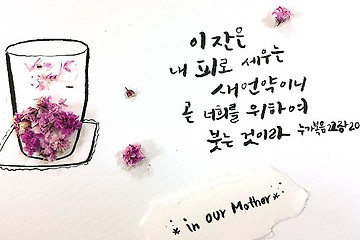 이 잔은
내 피로 세우는
새 언약이니
곧 너희를 위하여
붓는 것이라 누가복음 22장 20
* in our Mother *